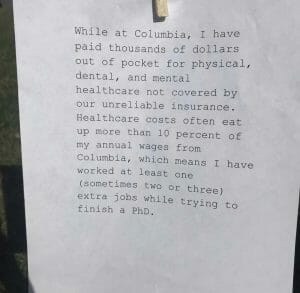 While at Columbia, I have
paid thousands of dollars
out of pocket for physical,
dental, and mental
healthcare not covered by
our unreliable insurance.
Healthcare costs often eat
up more than 10 percent of
my annual wages from
Columbia, which means I have
worked at least one
(sometimes two or three)
extra jobs while trying to
finish a PhD.